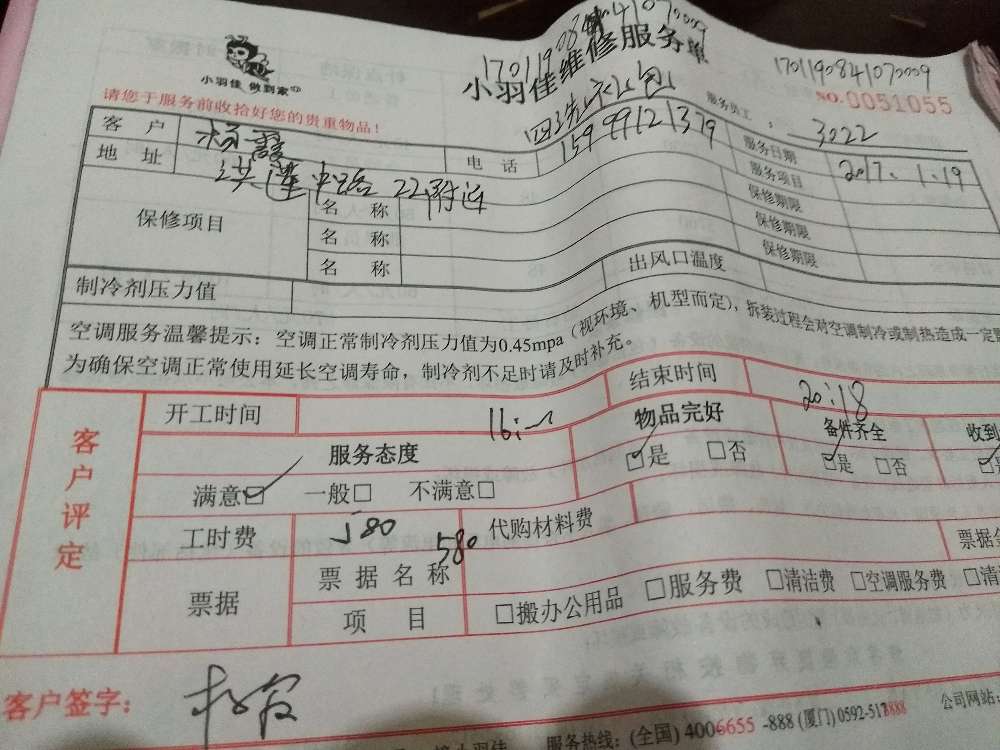 小羽佳 做到家
小羽佳维修服务单
1701190841070009
1701190841070009
NO.0051055
请您于服务前收拾好您的贵重物品!
服务员工： 3022
客户 电话 15999121379 服务日期 2017.1.19
地址 中路22附近 服务项目
保修项目 名称 保修期限
名称 保修期限
名称 保修期限
制冷剂压力值 出风口温度
空调服务温馨提示：空调正常制冷剂压力值为0.45mpa（视环境、机型而定），拆装过程会对空调制冷或制热造成一定
为确保空调正常使用延长空调寿命，制冷剂不足时请及时补充。
客户评定
开工时间 结束时间 20:18
服务态度 物品完好 备件齐全 收到
满意□ 一般□ 不满意□ □是 □否 □是 □否
工时费 580 代购材料费
580
票据 票据名称 票据
项目 □搬办公用品 □服务费 □清洁费 □空调服务费 □清
客户签字:
小羽佳 服务热线: (全国) 4006655-888 (厦门) 0592-5178888 公司网站: